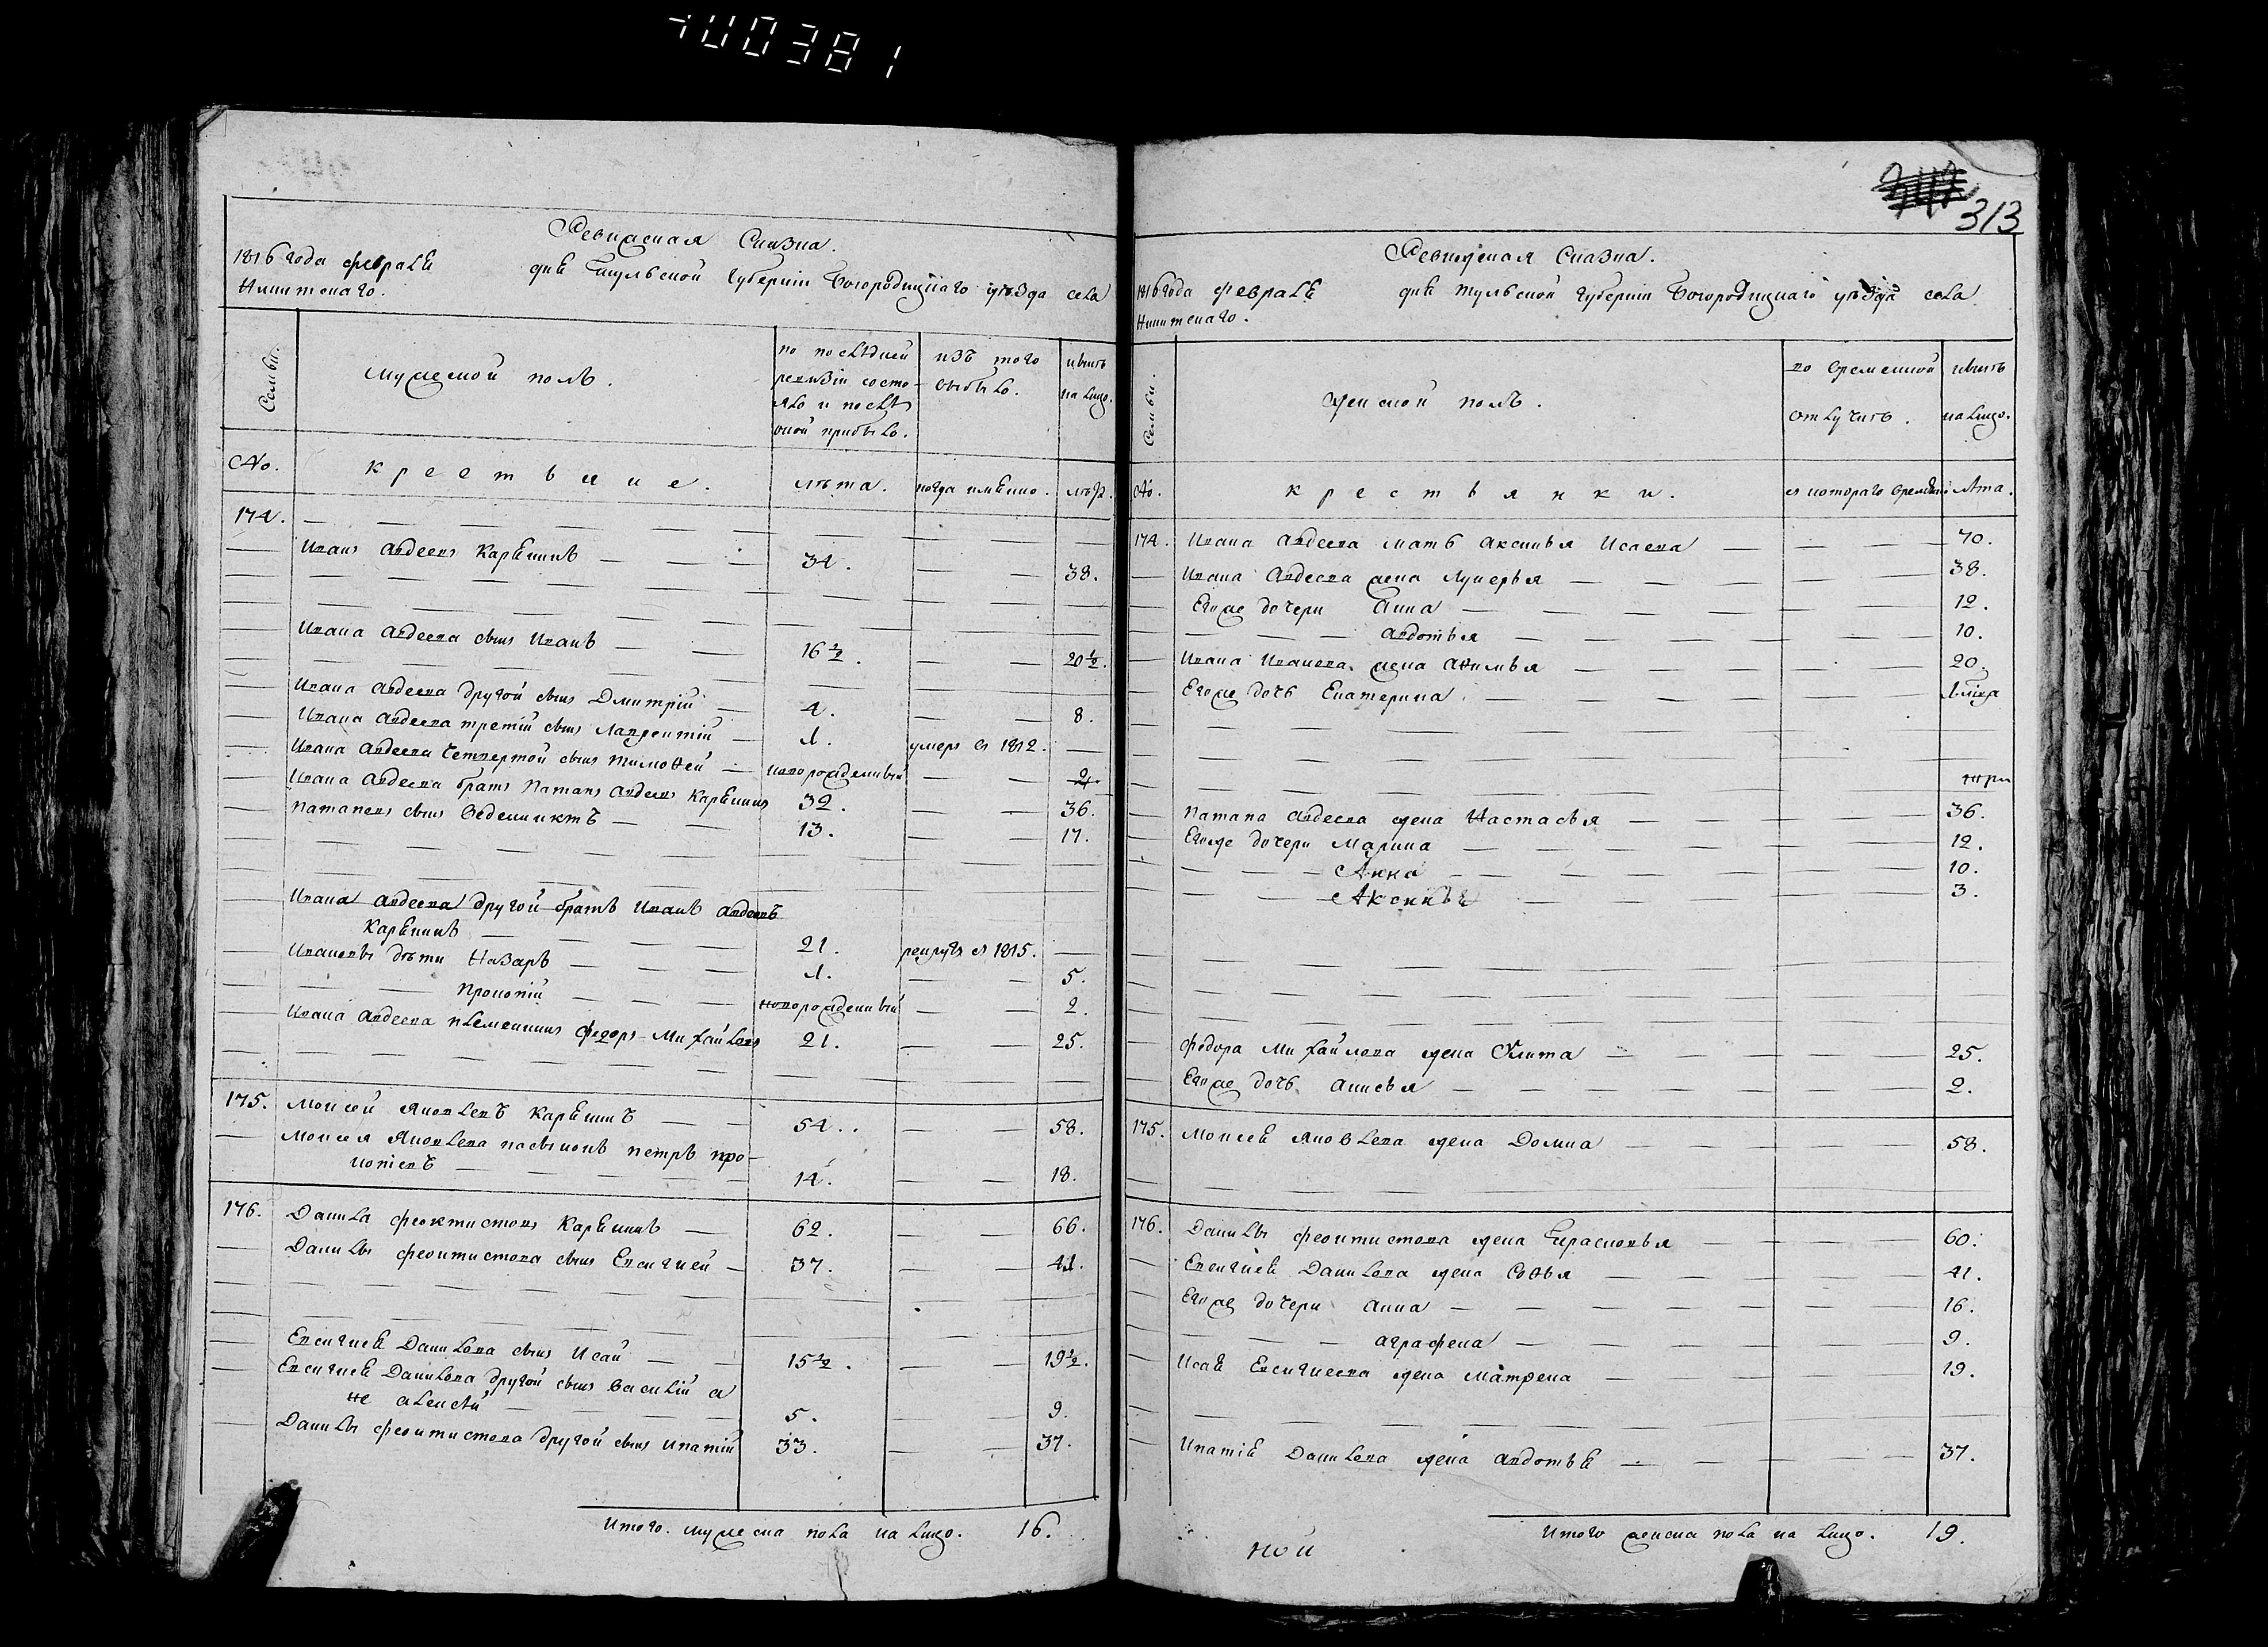 400381
Ревижская Сказка.
1816 года февраля дня Тульской Губернии Богородицкаго уѣзда села
Никитскаго.
Семьи.
Мужеской полъ.
по послѣдней ревизіи состояло и послѣ оной прибыло.
изъ того выбыло.
нынѣ на лицо.
No.
крестьяне.
лѣта.
когда имѣнно.
лѣта.
174.
Иванъ Авдеевъ Карѣкинъ 34. 38.
Ивана Авдеева сынъ Иванъ 16 1/2. 20 1/2.
Ивана Авдеева другой сынъ Дмитрій 4. 8.
Ивана Авдеева третій сынъ Лаврентій 1. умеръ в 1812.
Ивана Авдеева четвертой сынъ Тимоѳей новорожденный 2.
Ивана Авдеева братъ Патапъ Авдеевъ Карѣкинъ 32. 36.
Патаповъ сынъ Веденинктъ 13. 17.
Ивана Авдеева другой братъ Иванъ Авдеевъ
Карѣкинъ 21. рекрутъ в 1815.
Ивановы дѣти Назаръ 1. 5.
Прокопій новорожденный 2.
Ивана Авдеева племянникъ Федоръ Михайловъ 21. 25.
175. Моисей Яковлевъ Карѣкинъ 54. 58.
Моисея Яковлева пасынокъ Петръ Про-
копіевъ 14. 18.
176. Данила Феоктистовъ Карѣкинъ 62. 66.
Данилы Феоктистова сынъ Евсигней 37. 41.
Евсигнея Данилова сынъ Исай 15 1/2. 19 1/2.
Евсигнея Данилова другой сынъ Василій а
не Алексѣй 5. 9.
Данилы Феоктистова другой сынъ Ипатій 33. 37.
Итого. мужеска пола на лицо. 16.
313
Ревижская Сказка.
1816 года февраля дня Тульской Губерніи Богородицкаго уѣзда села
Никитскаго.
Семьи.
Женской полъ.
во временной отлучкѣ.
нынѣ на лицо.
No.
крестьянки.
съ котораго времѣни.
лѣта.
174. Ивана Авдеева мать Аксинья Исаева 70.
Ивана Авдеева жена Лукерья 38.
Егоже дочери Анна 12.
Авдотья 10.
Ивана Иванова жена Афимья 20.
Егоже дочь Екатерина
Патапа Авдеева жена Настасья 36.
Егоже дочери Марина 12.
Анна 10.
Аксинья 3.
Федора Михайлова жена Улита 25.
Егоже дочь Анисья 2.
175. Моисея Яковлева жена Домна 58.
176. Данилы Феоктистова жена Герасковья 60.
Евсигнея Данилова жена Софья 41.
Егоже дочери Анна 16.
Аграфена 9.
Исая Евсигнеева жена Матрена 19.
Ипатія Данилова жена Авдотья 37.
Итого женска пола на лицо. 19.
ной